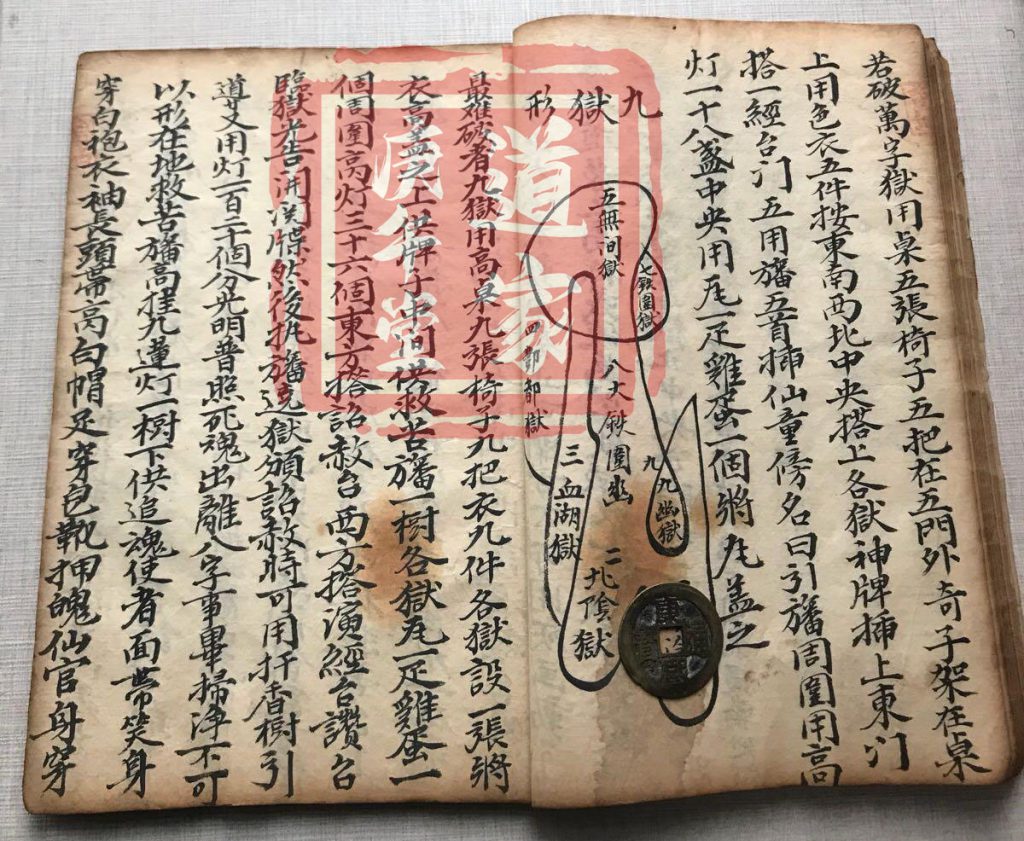 若破萬字獄用桌五張椅子五把在五門外奇子架在桌
上用色衣五件按東南西北中央搭上各獄神牌揷上東门
搭一經台门五用旛五首揷仙童傍名曰引旛周圍用高
灯一十八盞中央用瓦一疋雞蛋一個將瓦盖之
九獄形
七铁圍獄
五無间獄
九九幽獄
八大鉄圍幽
四酆都獄
三血湖獄
二北陰獄
最难破者九獄用高桌九張椅子九把衣九件各獄設一張將
衣高盖之上供牌子中间供救苦旛一樹各獄瓦一疋雞蛋一
個周圍高灯三十六個東方搭詔赦台西方搭演經台讚台
臨獄先告開関牒然後执旛遶獄頒詔赦時可用扞香樹引
道又用灯一百二十個分光明普照死魂出離八字事畢掃淨不可
以形在地救苦旛高挂九蓮灯一樹下供追魂使者面带笑身
穿白袍衣袖長頭带高白帽足穿皂靴押魄仙官身穿
道家